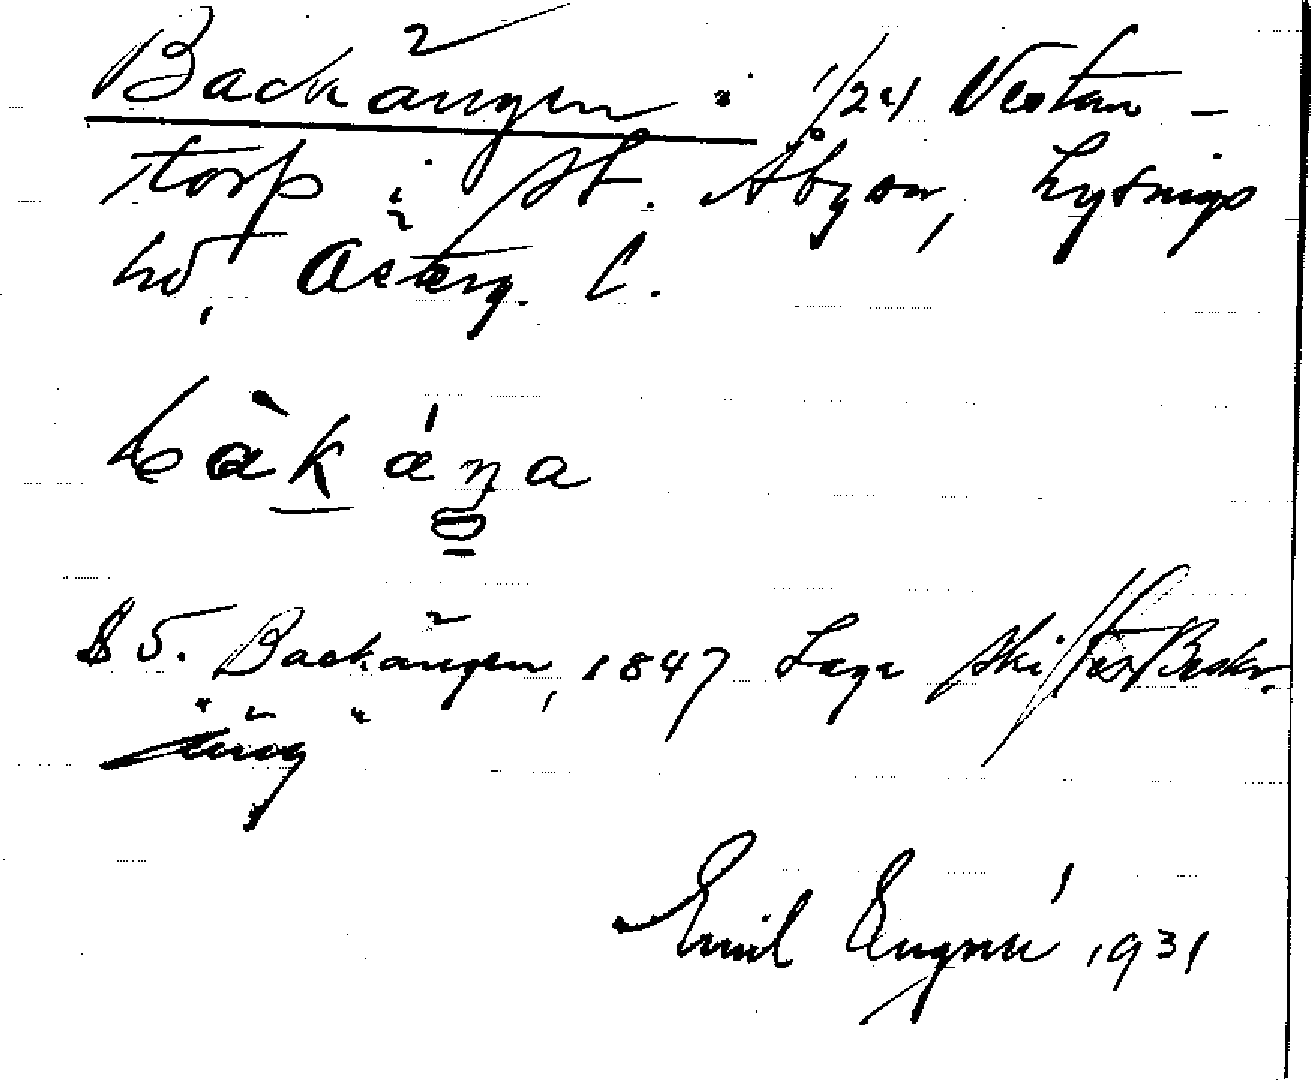 Backängen i 1/24 Vestan-
torp i St. Åby sn, Lysings
hd, Österg. l.
bàkáŋa
§ 5. Backängen, 1847 Laga skiftes Beskr.
äng
Emil 1931